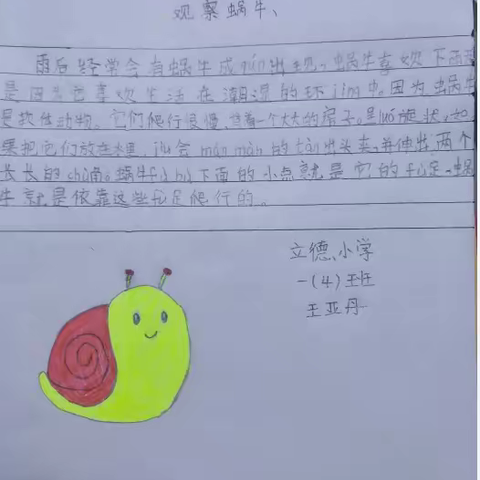 观察蜗牛、
雨后经常会有蜗牛成qún出现,蜗牛喜欢下雨
是因为它喜欢生活在潮湿的环jìng中。因为蜗牛
是软体动物。它们爬行很慢,背着一个大大的房子。呈luó旋状,如
果把它们放在水里,jiù会màn màn的tàn出头来,并伸出两个
长长的chù角。蜗牛fù bù下面的小点就是它的fù足,蜗
牛就是依靠这些fù足爬行的。
立德小学
一(4)班
王亚丹